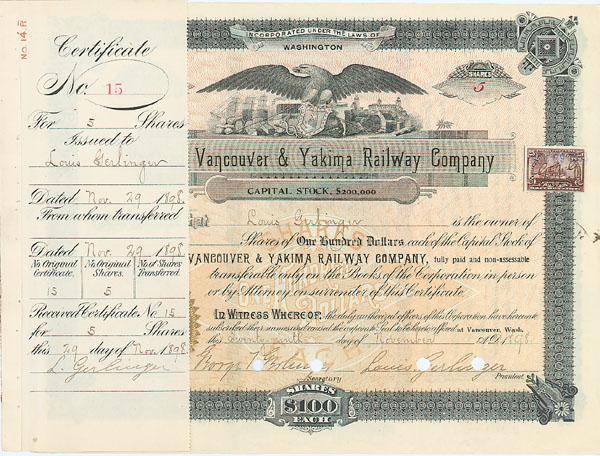 No. 14. R
Certificate
No. 15
For 5 Shares
Issued to
Louis Gerlinger
Dated Nov. 29 1898
From whom transferred
Dated Nov. 29 1898
No. Original Certificate. No. Original Shares. No. of Shares Transferred.
15 5
Received Certificate No. 15
for 5 Shares
this 29 day of Nov. 1898
L. Gerlinger
INCORPORATED UNDER THE LAWS OF
WASHINGTON
SHARES
5
Vancouver & Yakima Railway Company
CAPITAL STOCK, $200,000
Louis Gerlinger is the owner of
Shares of One Hundred Dollars each of the Capital Stock of
VANCOUVER & YAKIMA RAILWAY COMPANY, fully paid and non-assessable
transferable only on the Books of the Corporation in person
or by Attorney on surrender of this Certificate.
In Witness Whereof, the duly authorized officers of this Corporation have hereunto
subscribed their names and caused the corporate Seal to be hereto affixed at Vancouver, Wash.
this twenty ninth day of November A.D. 1898.
George T. Gerlinger Louis Gerlinger
Secretary President
SHARES
$100
EACH